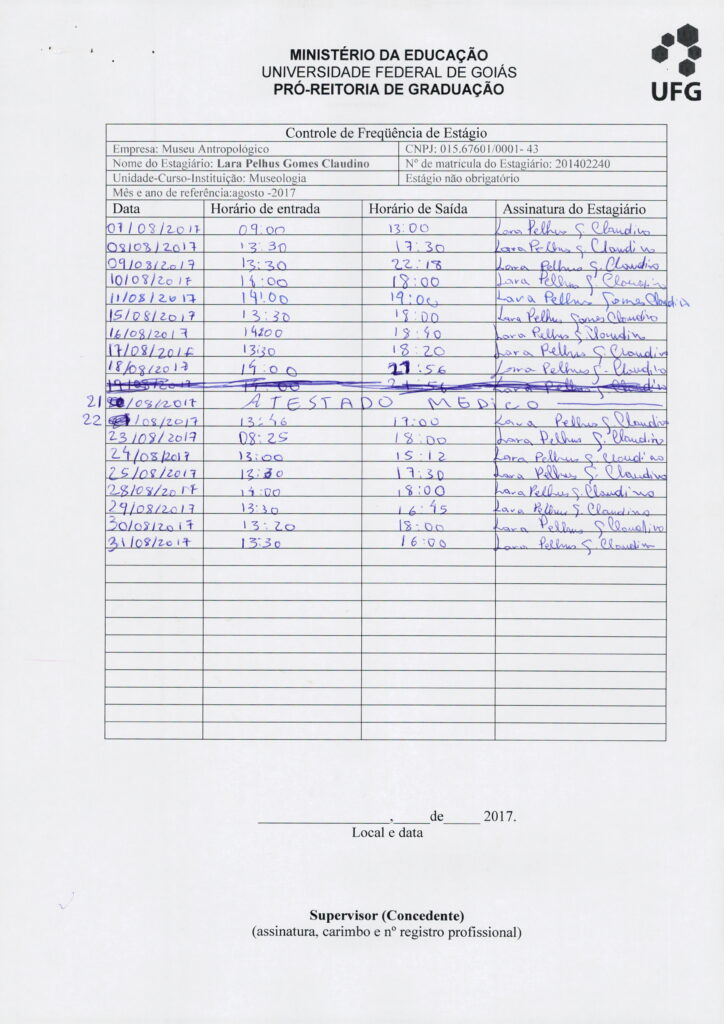 MINISTÉRIO DA EDUCAÇÃO
UNIVERSIDADE FEDERAL DE GOIÁS
PRÓ-REITORIA DE GRADUAÇÃO
UFG
Controle de Freqüência de Estágio
Empresa: Museu Antropológico CNPJ: 015.67601/0001- 43
Nome do Estagiário: Lara Pelhus Gomes Claudino Nº de matrícula do Estagiário: 201402240
Unidade-Curso-Instituição: Museologia Estágio não obrigatório
Mês e ano de referência:agosto -2017
Data Horário de entrada Horário de Saída Assinatura do Estagiário
07/08/2017 09:00 13:00 Lara Pelhus G Claudino
08/08/2017 13:30 17:30 Lara Pelhus G Claudino
09/08/2017 13:30 22:18 Lara Pelhus G Claudino
10/08/2017 14:00 18:00 Lara Pelhus G Claudino
11/08/2017 14:00 19:00 Lara Pelhus Gomes Claudio
15/08/2017 13:30 18:00 Lara Pelhus Gomes Claudio
16/08/2017 14:00 18:40 Lara Pelhus G Claudino
17/08/2017 13:30 18:20 Lara Pelhus G Claudino
18/08/2017 14:00 21:56 Lara Pelhus G. Claudino
19/08/2017
21/08/2017 ATESTADO MEDICO
22/08/2017 13:46 17:00 Lara Pelhus G Claudino
23/08/2017 08:25 18:00 Lara Pelhus G. Claudino
24/08/2017 13:00 15:12 Lara Pelhus G. Claudino
25/08/2017 13:30 17:30 Lara Pelhus G. Claudino
28/08/2017 14:00 18:00 Lara Pelhus G. Claudino
29/08/2017 13:30 16:45 Lara Pelhus G. Claudino
30/08/2017 13:20 18:00 Lara Pelhus G Claudino
31/08/2017 13:30 16:00 Lara Pelhus G. Claudino
____________________,_____de_____ 2017.
Local e data
Supervisor (Concedente)
(assinatura, carimbo e nº registro profissional)